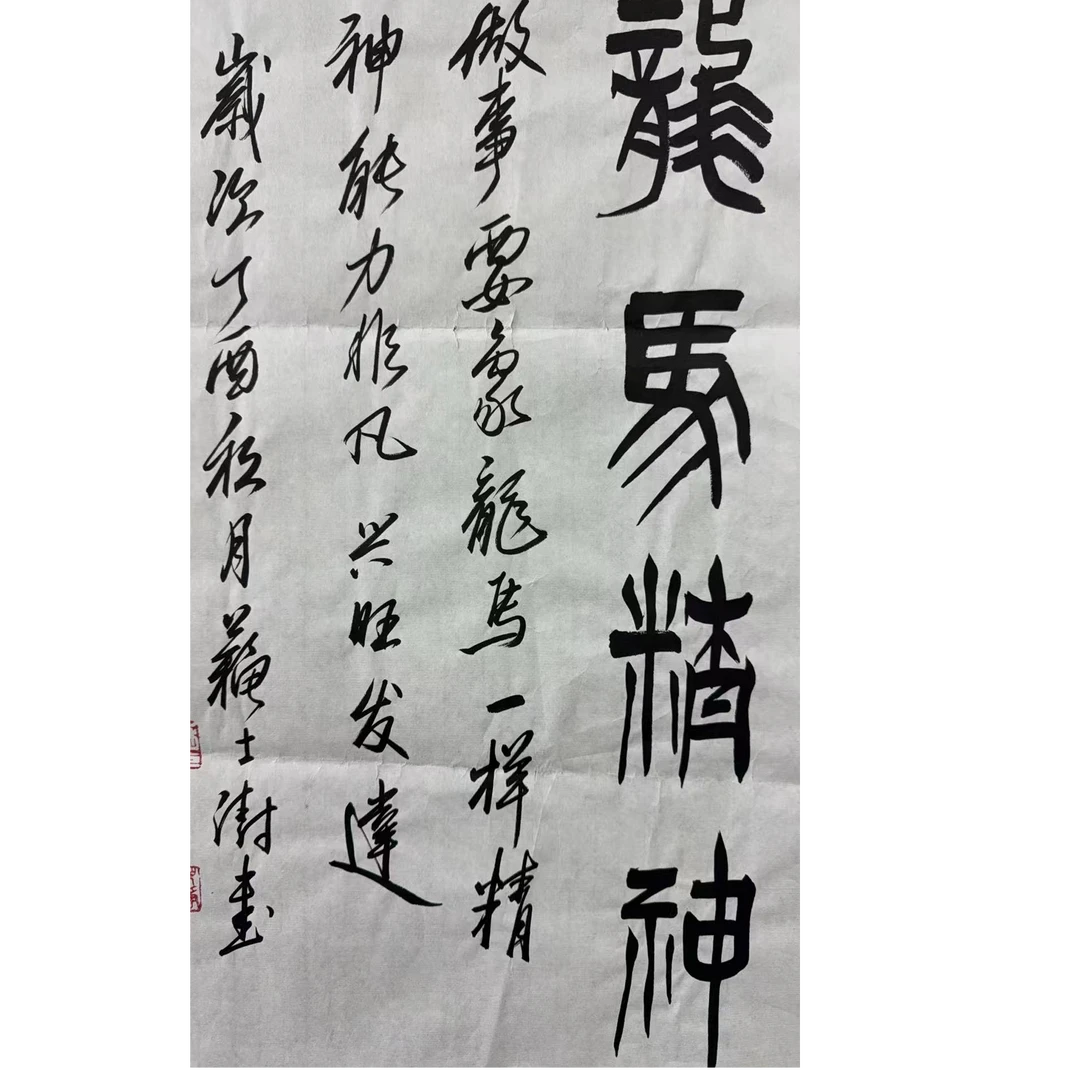 龍馬精神
做事要象龍馬一样精
神能力非凡兴旺发達
歲次丁酉秋月蘇士澍書